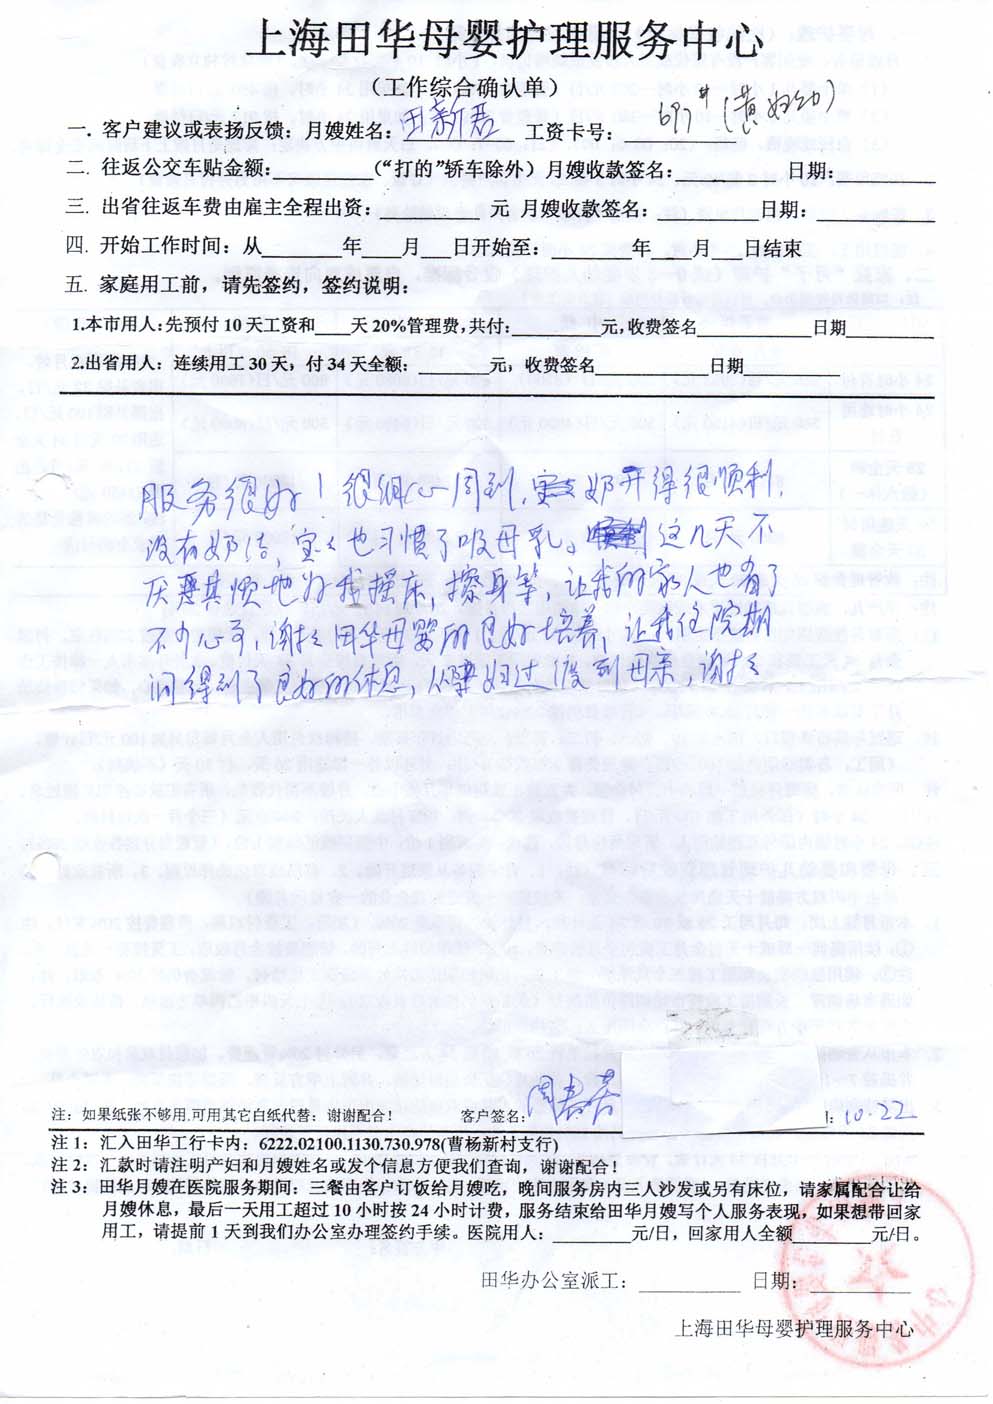 上海田华母婴护理服务中心
（工作综合确认单）
697# (黄妇幼)
一. 客户建议或表扬反馈: 月嫂姓名: 田新君 工资卡号:
二. 往返公交车贴金额:__________ (“打的”轿车除外) 月嫂收款签名:________ 日期:________
三. 出省往返车费由雇主全程出资:________元, 月嫂收款签名:________日期:________
四. 开始工作时间: 从________年____月____日开始至:________年____月____日结束
五. 家庭用工前，请先签约，签约说明:
1.本市用人: 先预付 10 天工资和___天 20%管理费, 共付:________元, 收费签名________日期____
2.出省用人: 连续用工 30 天，付 34 天全额:________元，收费签名________日期
服务很好！很细心周到，宝宝奶开得很顺利,
没有奶结，宝宝也习惯了吸母乳。这几天不
厌其烦地为我擦床、擦身等，让我的家人也省了
不少心了，谢谢田华母婴的良好培养，让我住院期
间得到了良好的休息，从孕妇过渡到母亲，谢谢
注: 如果纸张不够用.可用其它白纸代替，谢谢配合！ 客户签名: 10.22
注 1: 汇入田华工行卡内: 6222.02100.1130.730.978(曹杨新村支行)
注 2: 汇款时请注明产妇和月嫂姓名或发个信息方便我们查询，谢谢配合！
注 3: 田华月嫂在医院服务期间: 三餐由客户订饭给月嫂吃，晚间服务房内三人沙发或另有床位，请家属配合让给
月嫂休息，最后一天用工超过 10 小时按 24 小时计费，服务结束给田华月嫂写个人服务表现，如果想带回家
用工，请提前 1 天到我们办公室办理签约手续。医院用人:________元/日，回家用人全额________元/日。
田华办公室派工: __________ 日期: __________
上海田华母婴护理服务中心